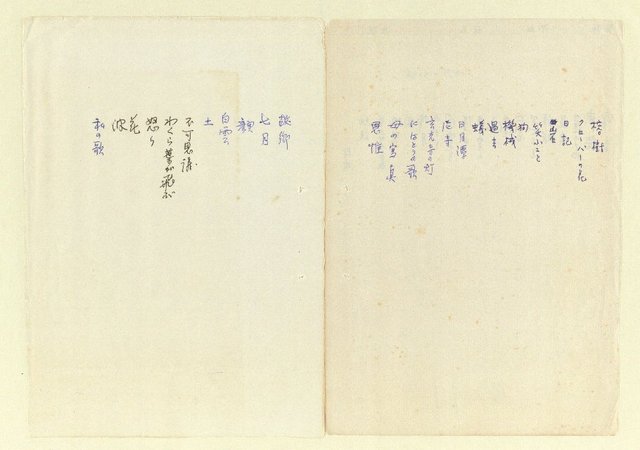 榕樹
クローバーの花
日記
岩
笑ふこと
狗
機械
過去
蟻
日月潭
尼寺
玄光寺の灯
にはとりの歌
母の写真
思惟
故郷
七月
顔
白雲
土
不可思議
わくら葉が飛ぶ
怒り
花
波
私の歌